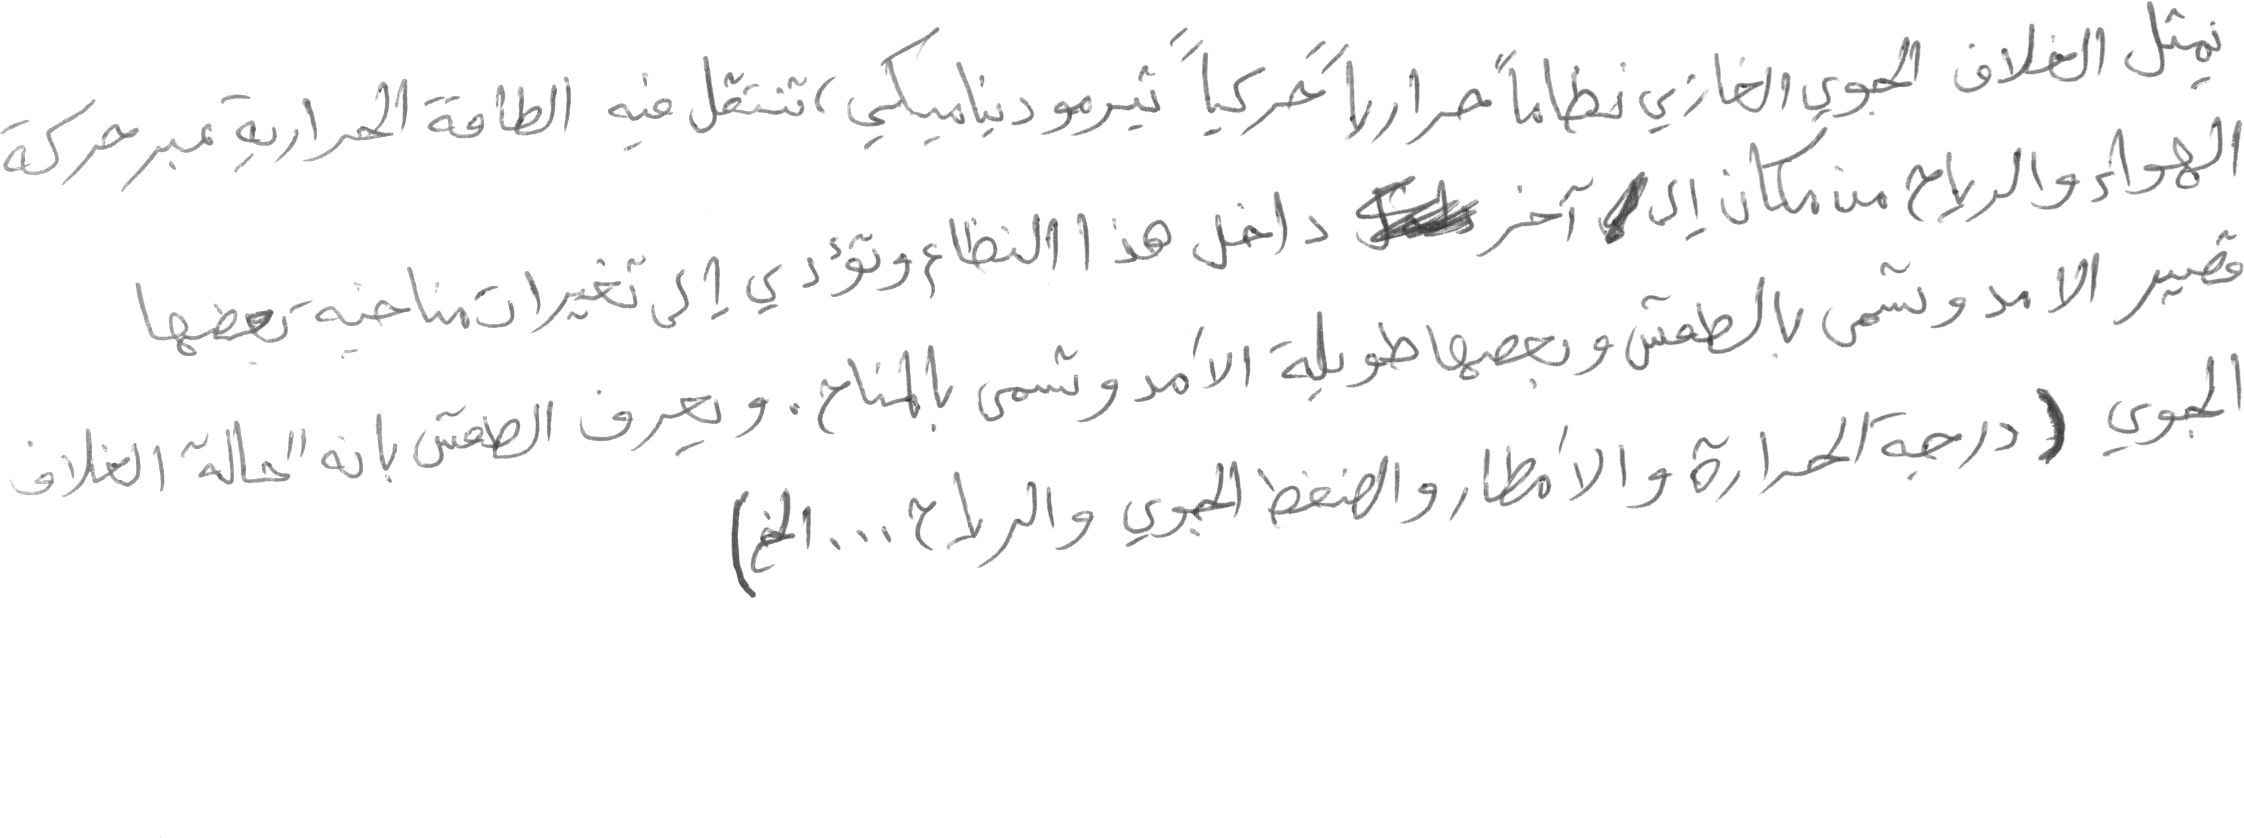 يمثل الغلاف الجوي الغازي نظاماً حرارياً حركياً ثيرموديناميكي، تنتقل فيه الطاقة الحرارية عبر حركة
الهواء والرياح من مكان إلى آخر داخل هذا النظام وتؤدي إلى تغيرات مناخية بعضها
قصير الامد وتسمى بالطقس وبعضها طويلة الأمد وتسمى بالمناخ. ويعرف الطقس بانه "حالة الغلاف
الجوي (درجة الحرارة والأمطار والضغط الجوي والرياح ... الخ)